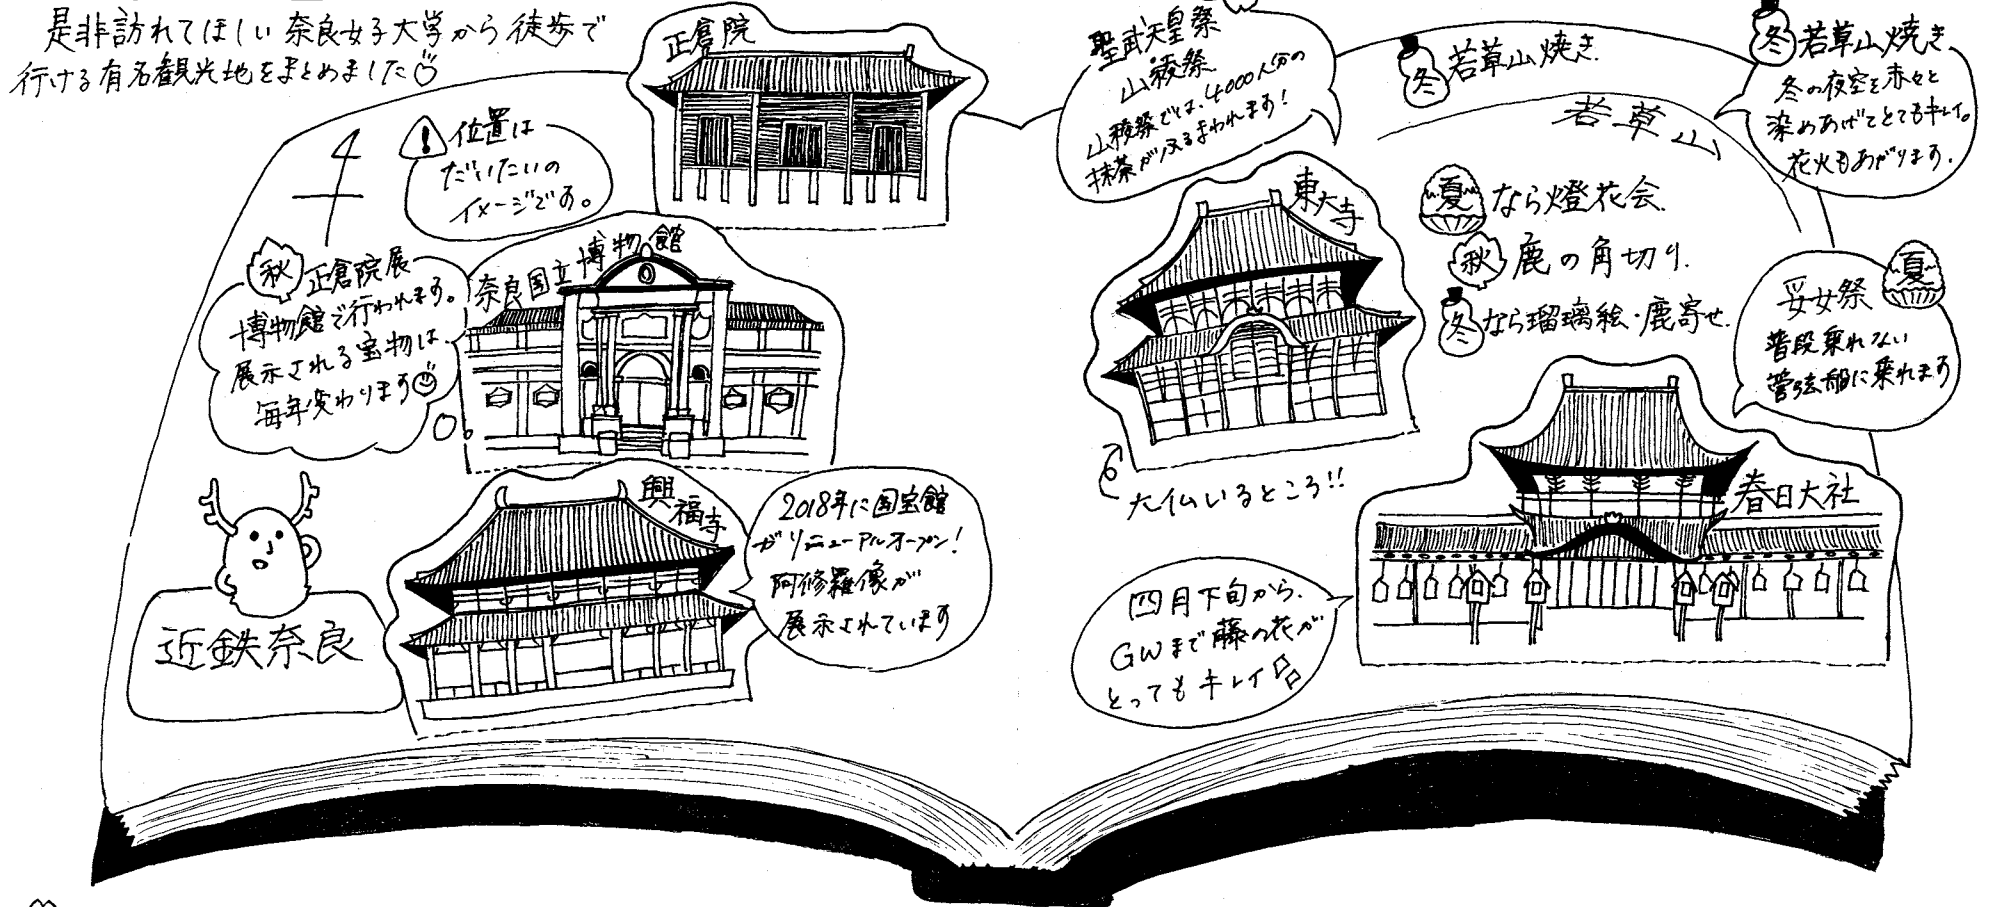 是非訪れてほしい奈良女子大学から徒歩で
行ける有名観光地をまとめました♡
正倉院
！位置は
だいたいの
イメージです。
秋 正倉院展
博物館で行われます。
展示される宝物は
毎年変わります
奈良国立博物館
興福寺
2018年に国宝館
がリニューアルオープン！
阿修羅像が
展示されています
近鉄奈良
聖武天皇祭
山稜祭
山稜祭では、4000人分の
抹茶がふるまわれます！
東大寺
大仏いるところ!!
冬 若草山焼き
若草山
冬 若草山焼き
冬の夜空を赤々と
染めあげてとてもキレイ。
花火もあがります.
夏 なら燈花会.
秋 鹿の角切り.
冬 なら瑠璃絵・鹿寄せ.
妥女祭 夏
普段乗れない
管弦船に乗れます
春日大社
四月下旬から.
GWまで藤の花が
とってもキレイ